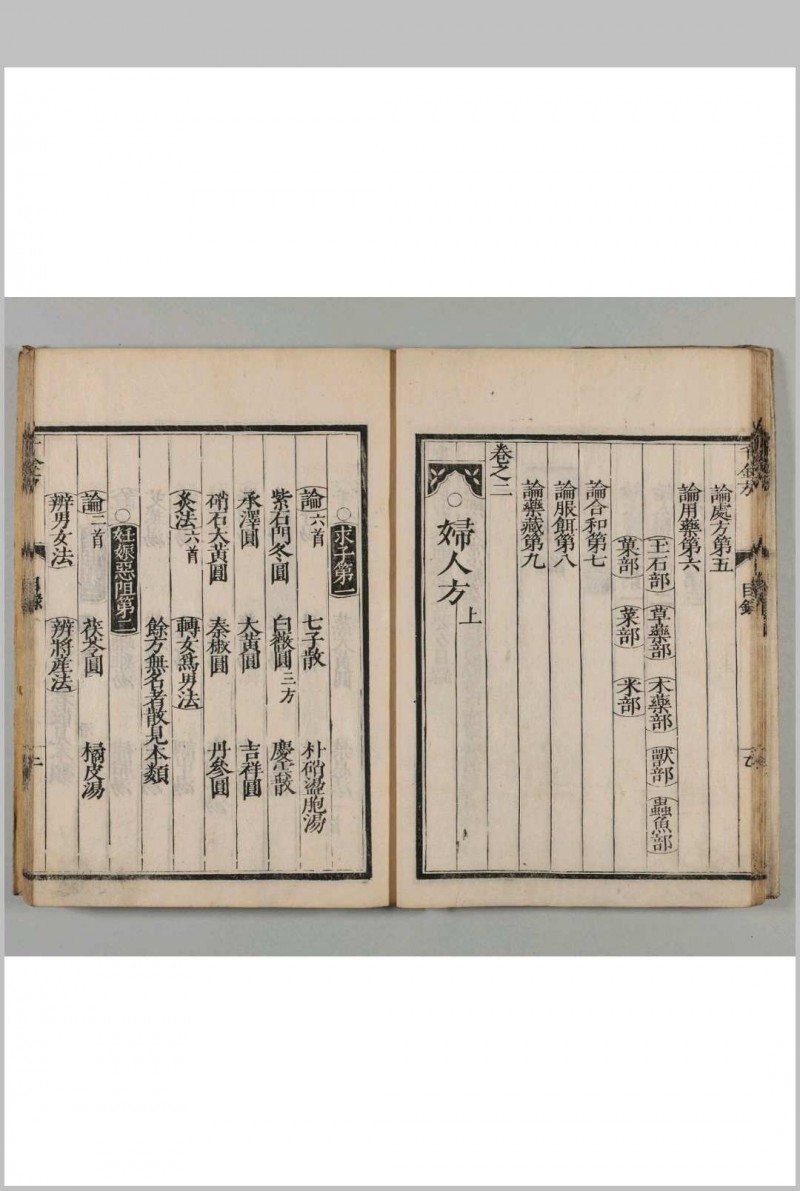 論處方第五
論用藥第六
玉石部 草藥部 木藥部 獸部 蟲魚部
菓部 菜部 米部
論合和第七
論服餌第八
論藥藏第九
卷之二
○婦人方上
○求子第一
論六首 七子散 朴硝盪胞湯
紫石門冬圓 白薇圓三方 慶雲散
承澤圓 大黃圓 吉祥圓
硝石大黃圓 秦椒圓 丹參圓
灸法六首 轉女爲男法
餘方無名者散見本類
○妊娠惡阻第二
論二首 茯苓圓 橘皮湯
辨男女法 辨將産法
目錄